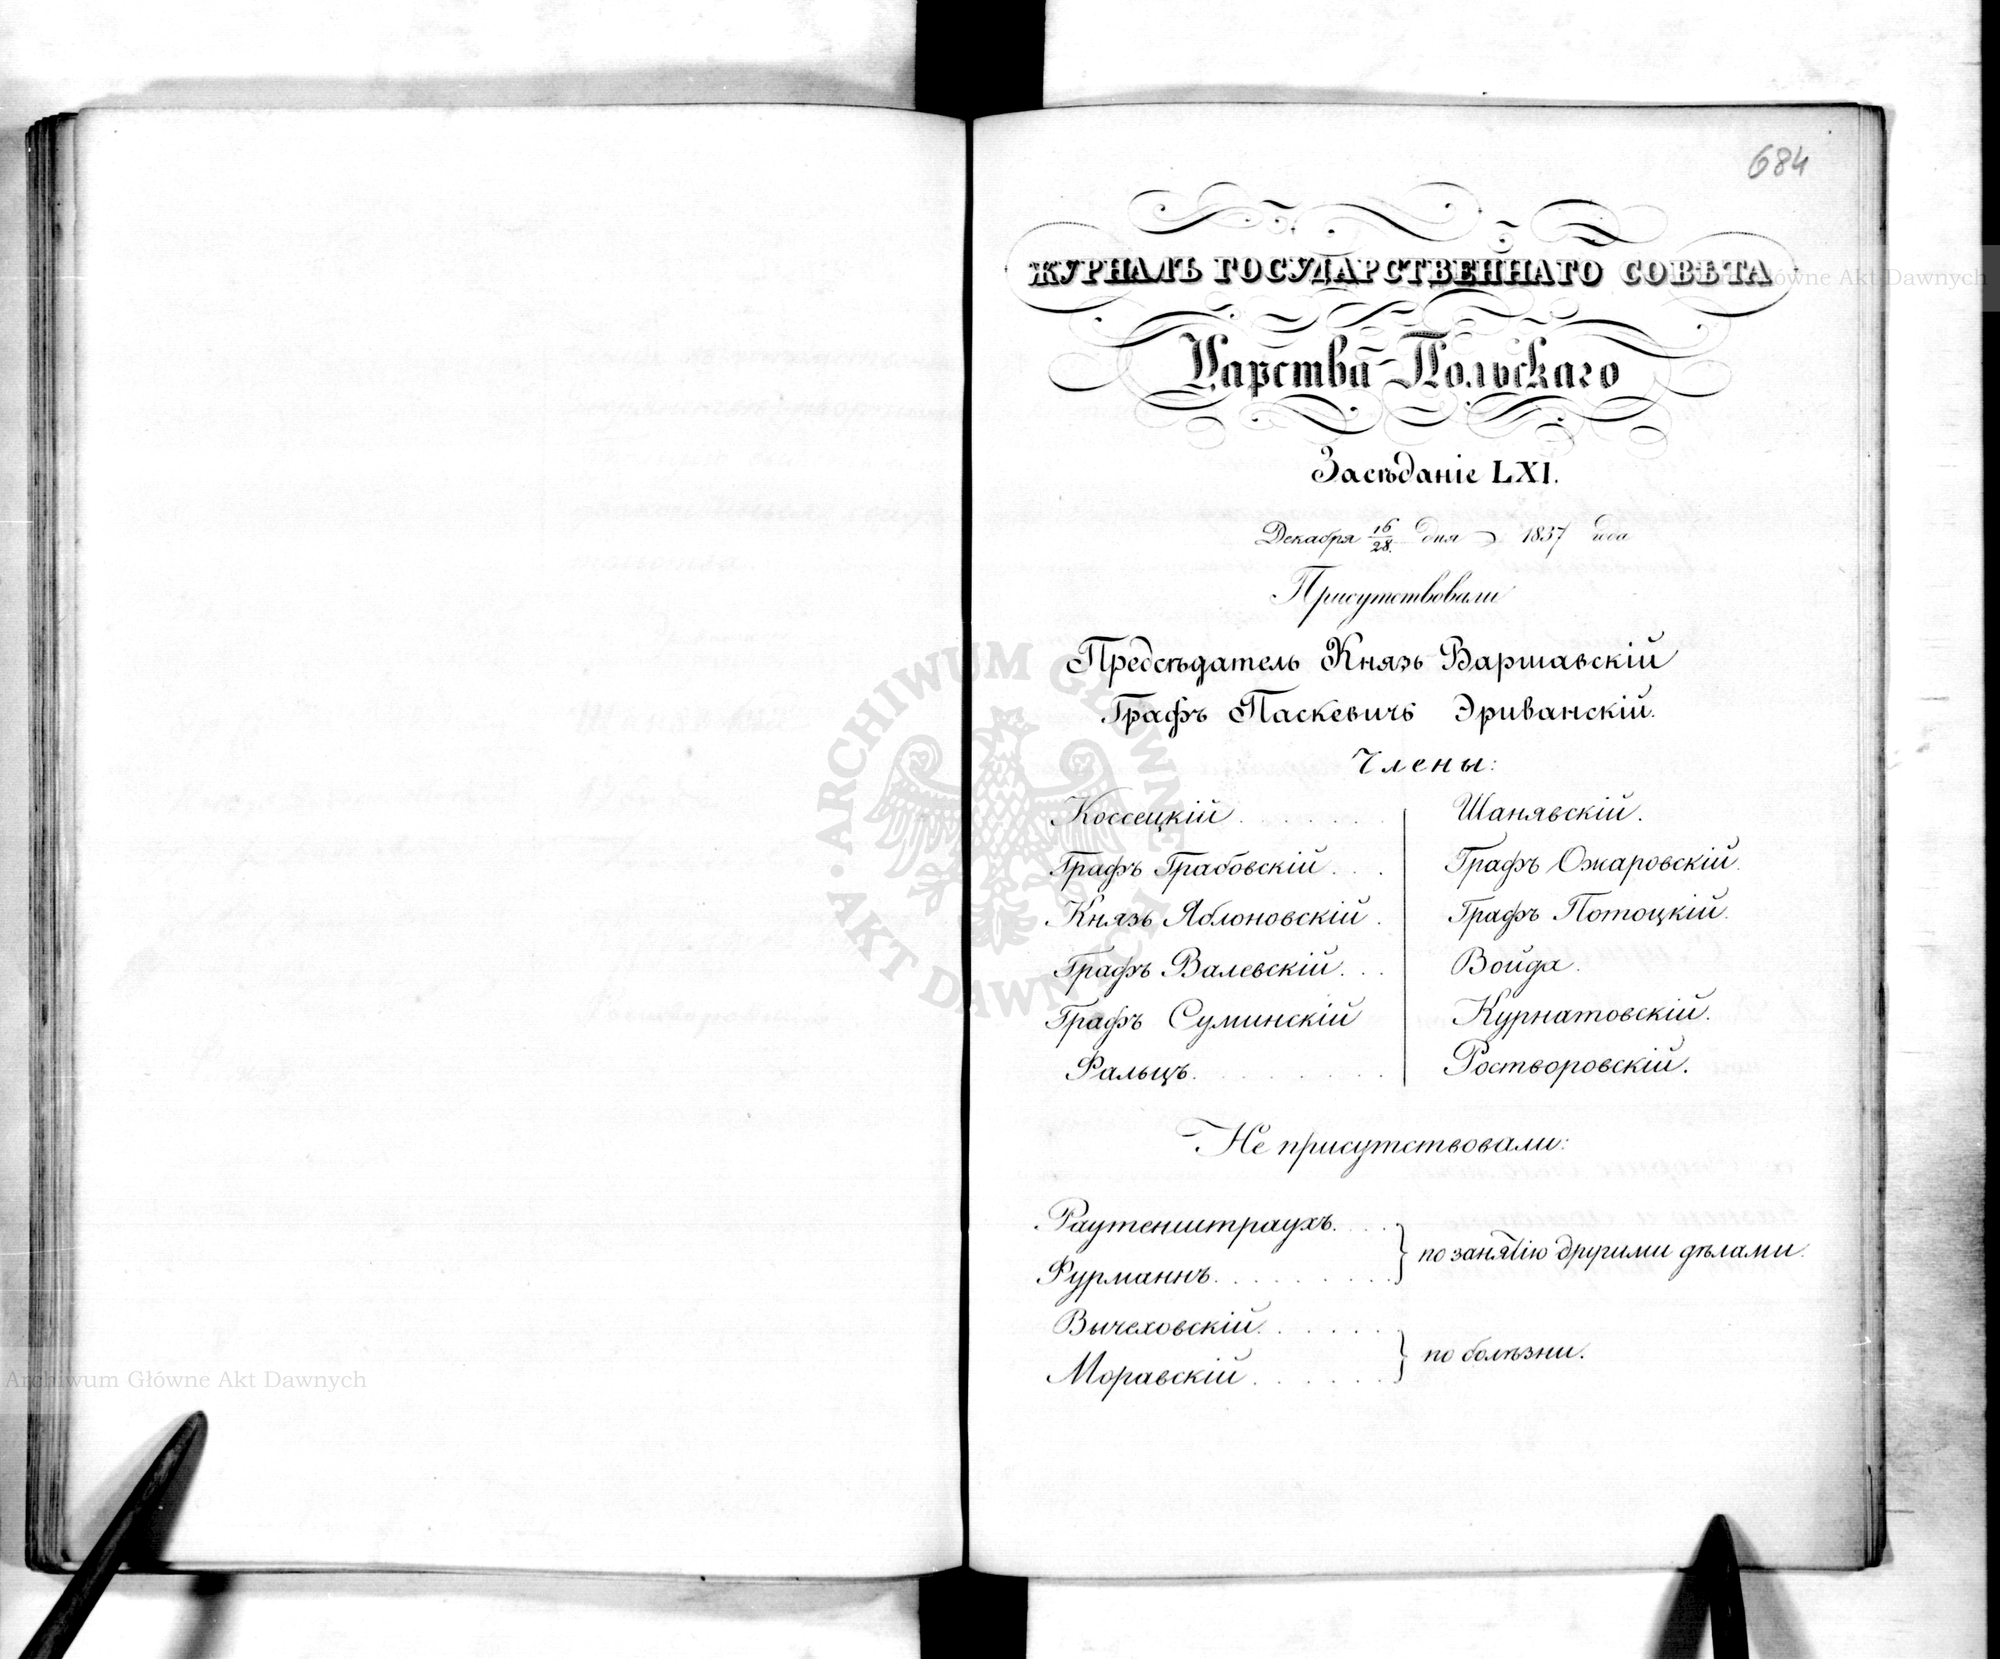 684
ЖУРНАЛЪ ГОСУДАРСТВЕННАГО СОВѢТА
Царства Польскаго
Засѣданіе LXI.
Декабря 16/28. дня 1837 года
Присутствовали
Предсѣдатель Князь Варшавскій
Графъ Паскевичъ Эриванскій.
Члены:
Коссецкій . . . . . . . Шанявскій.
Графъ Грабовскій . . . Графъ Ожаровскій.
Князь Яблоновскій . Графъ Потоцкій.
Графъ Валевскій . . . Войда.
Графъ Суминскій Курнатовскій.
Фальцъ. . . . . . . . . Ростворовскій.
Не присутствовали:
Раутенштраухъ. . . .
по занятію другими дѣлами.
Фурманнъ. . . . . . . . .
Вычеховскій. . . . . . .
по болѣзни.
Моравскій . . . . . . .
ARCHIWUM GŁÓWNE AKT DAWNYCH
Archiwum Główne Akt Dawnych
Główne Akt Dawnych